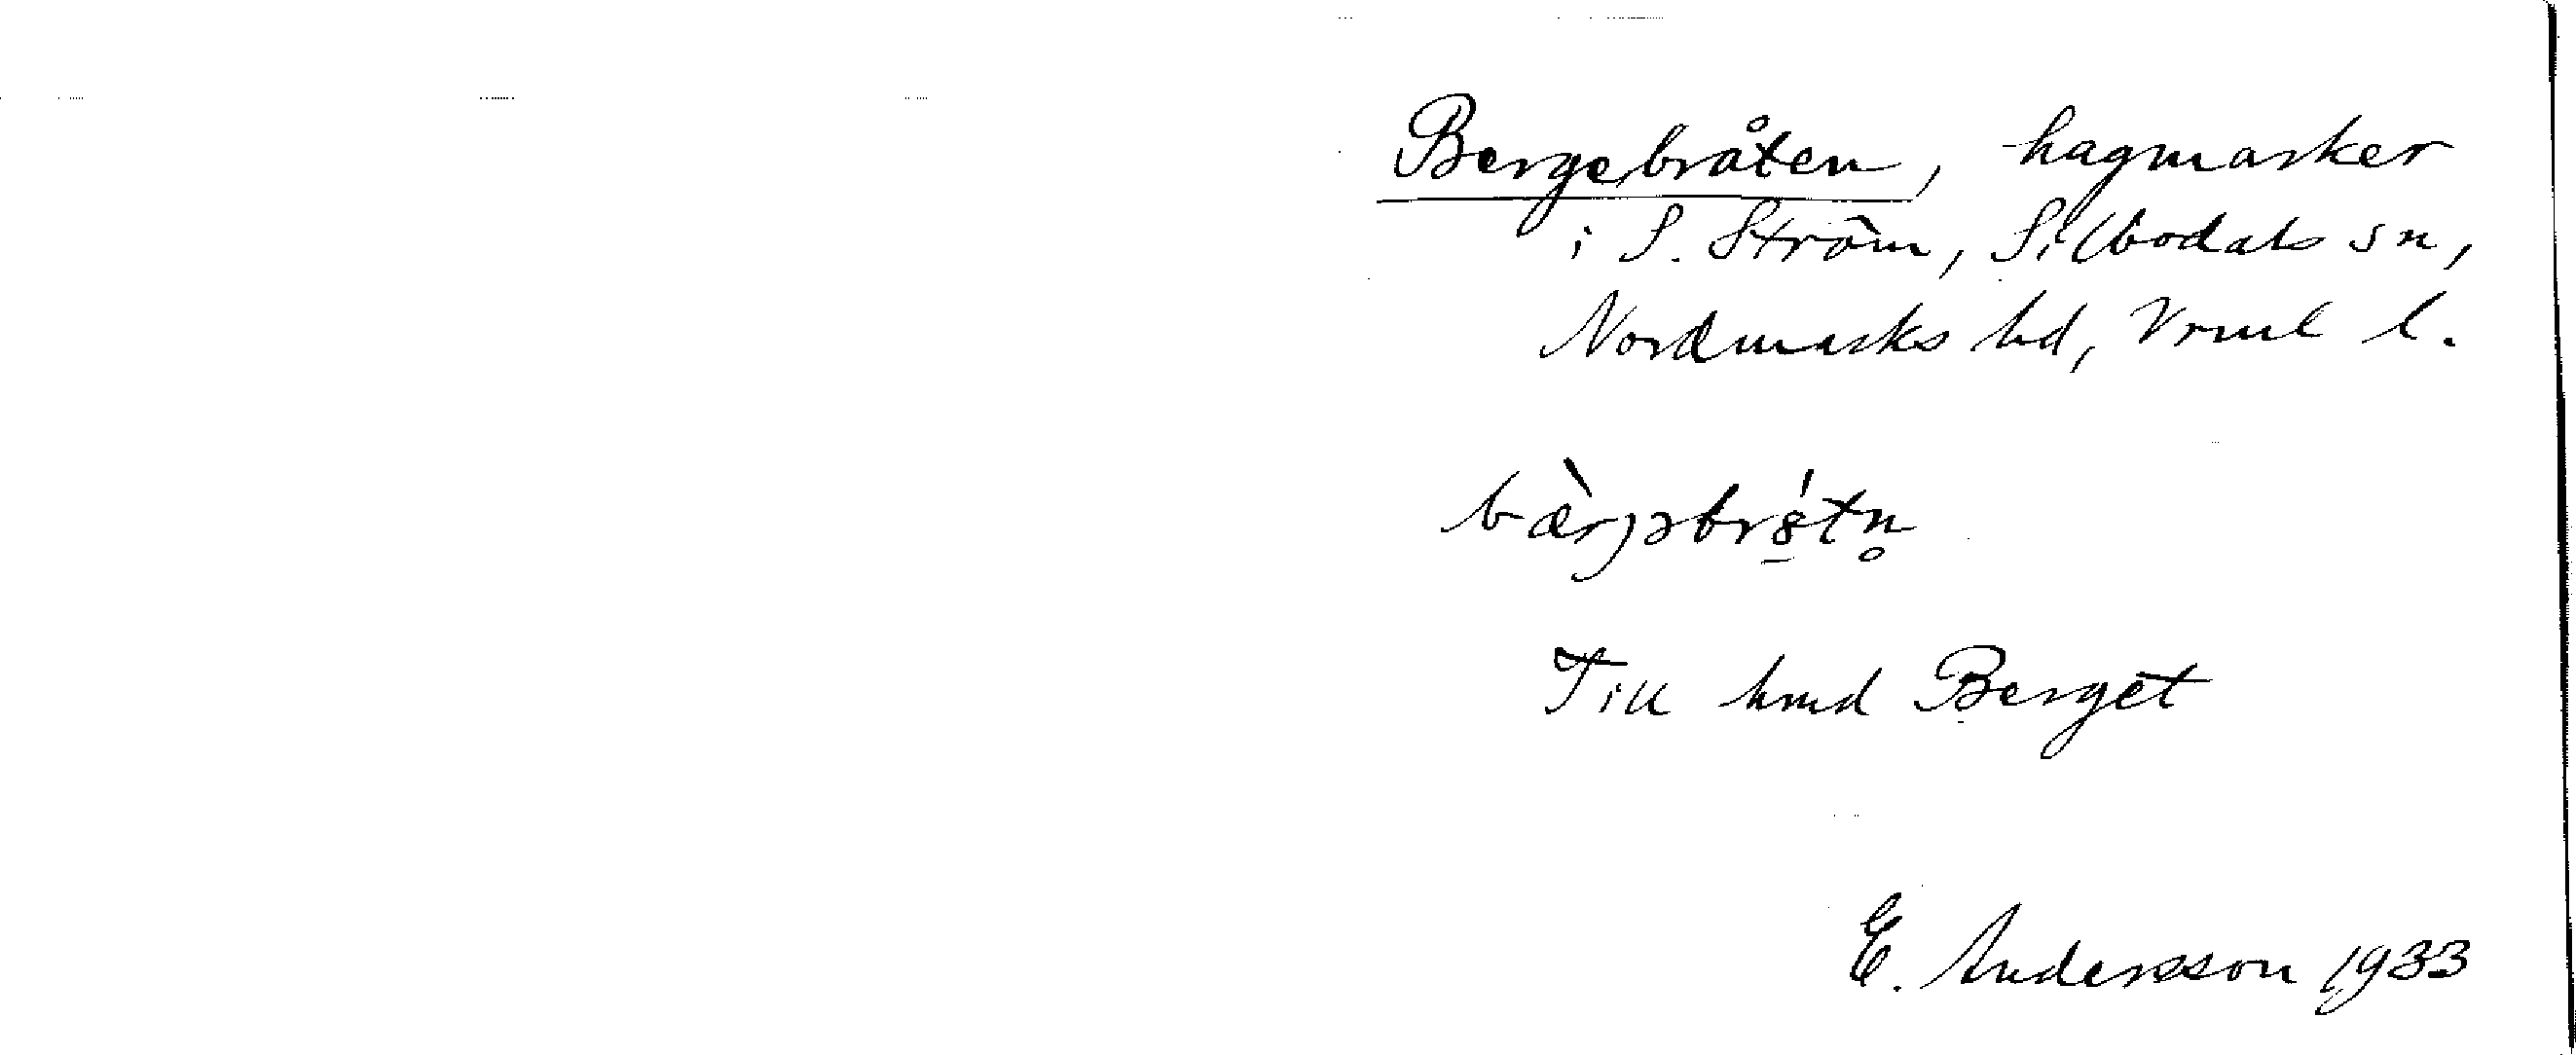 Bergebråten, hagmarker
i S. Ström, Silbodals sn,
Nordmarks hd, Vrml l.
bæ̀rjəbrė́8̱tn̥
Till hmd Berget
E. Andersson 1933